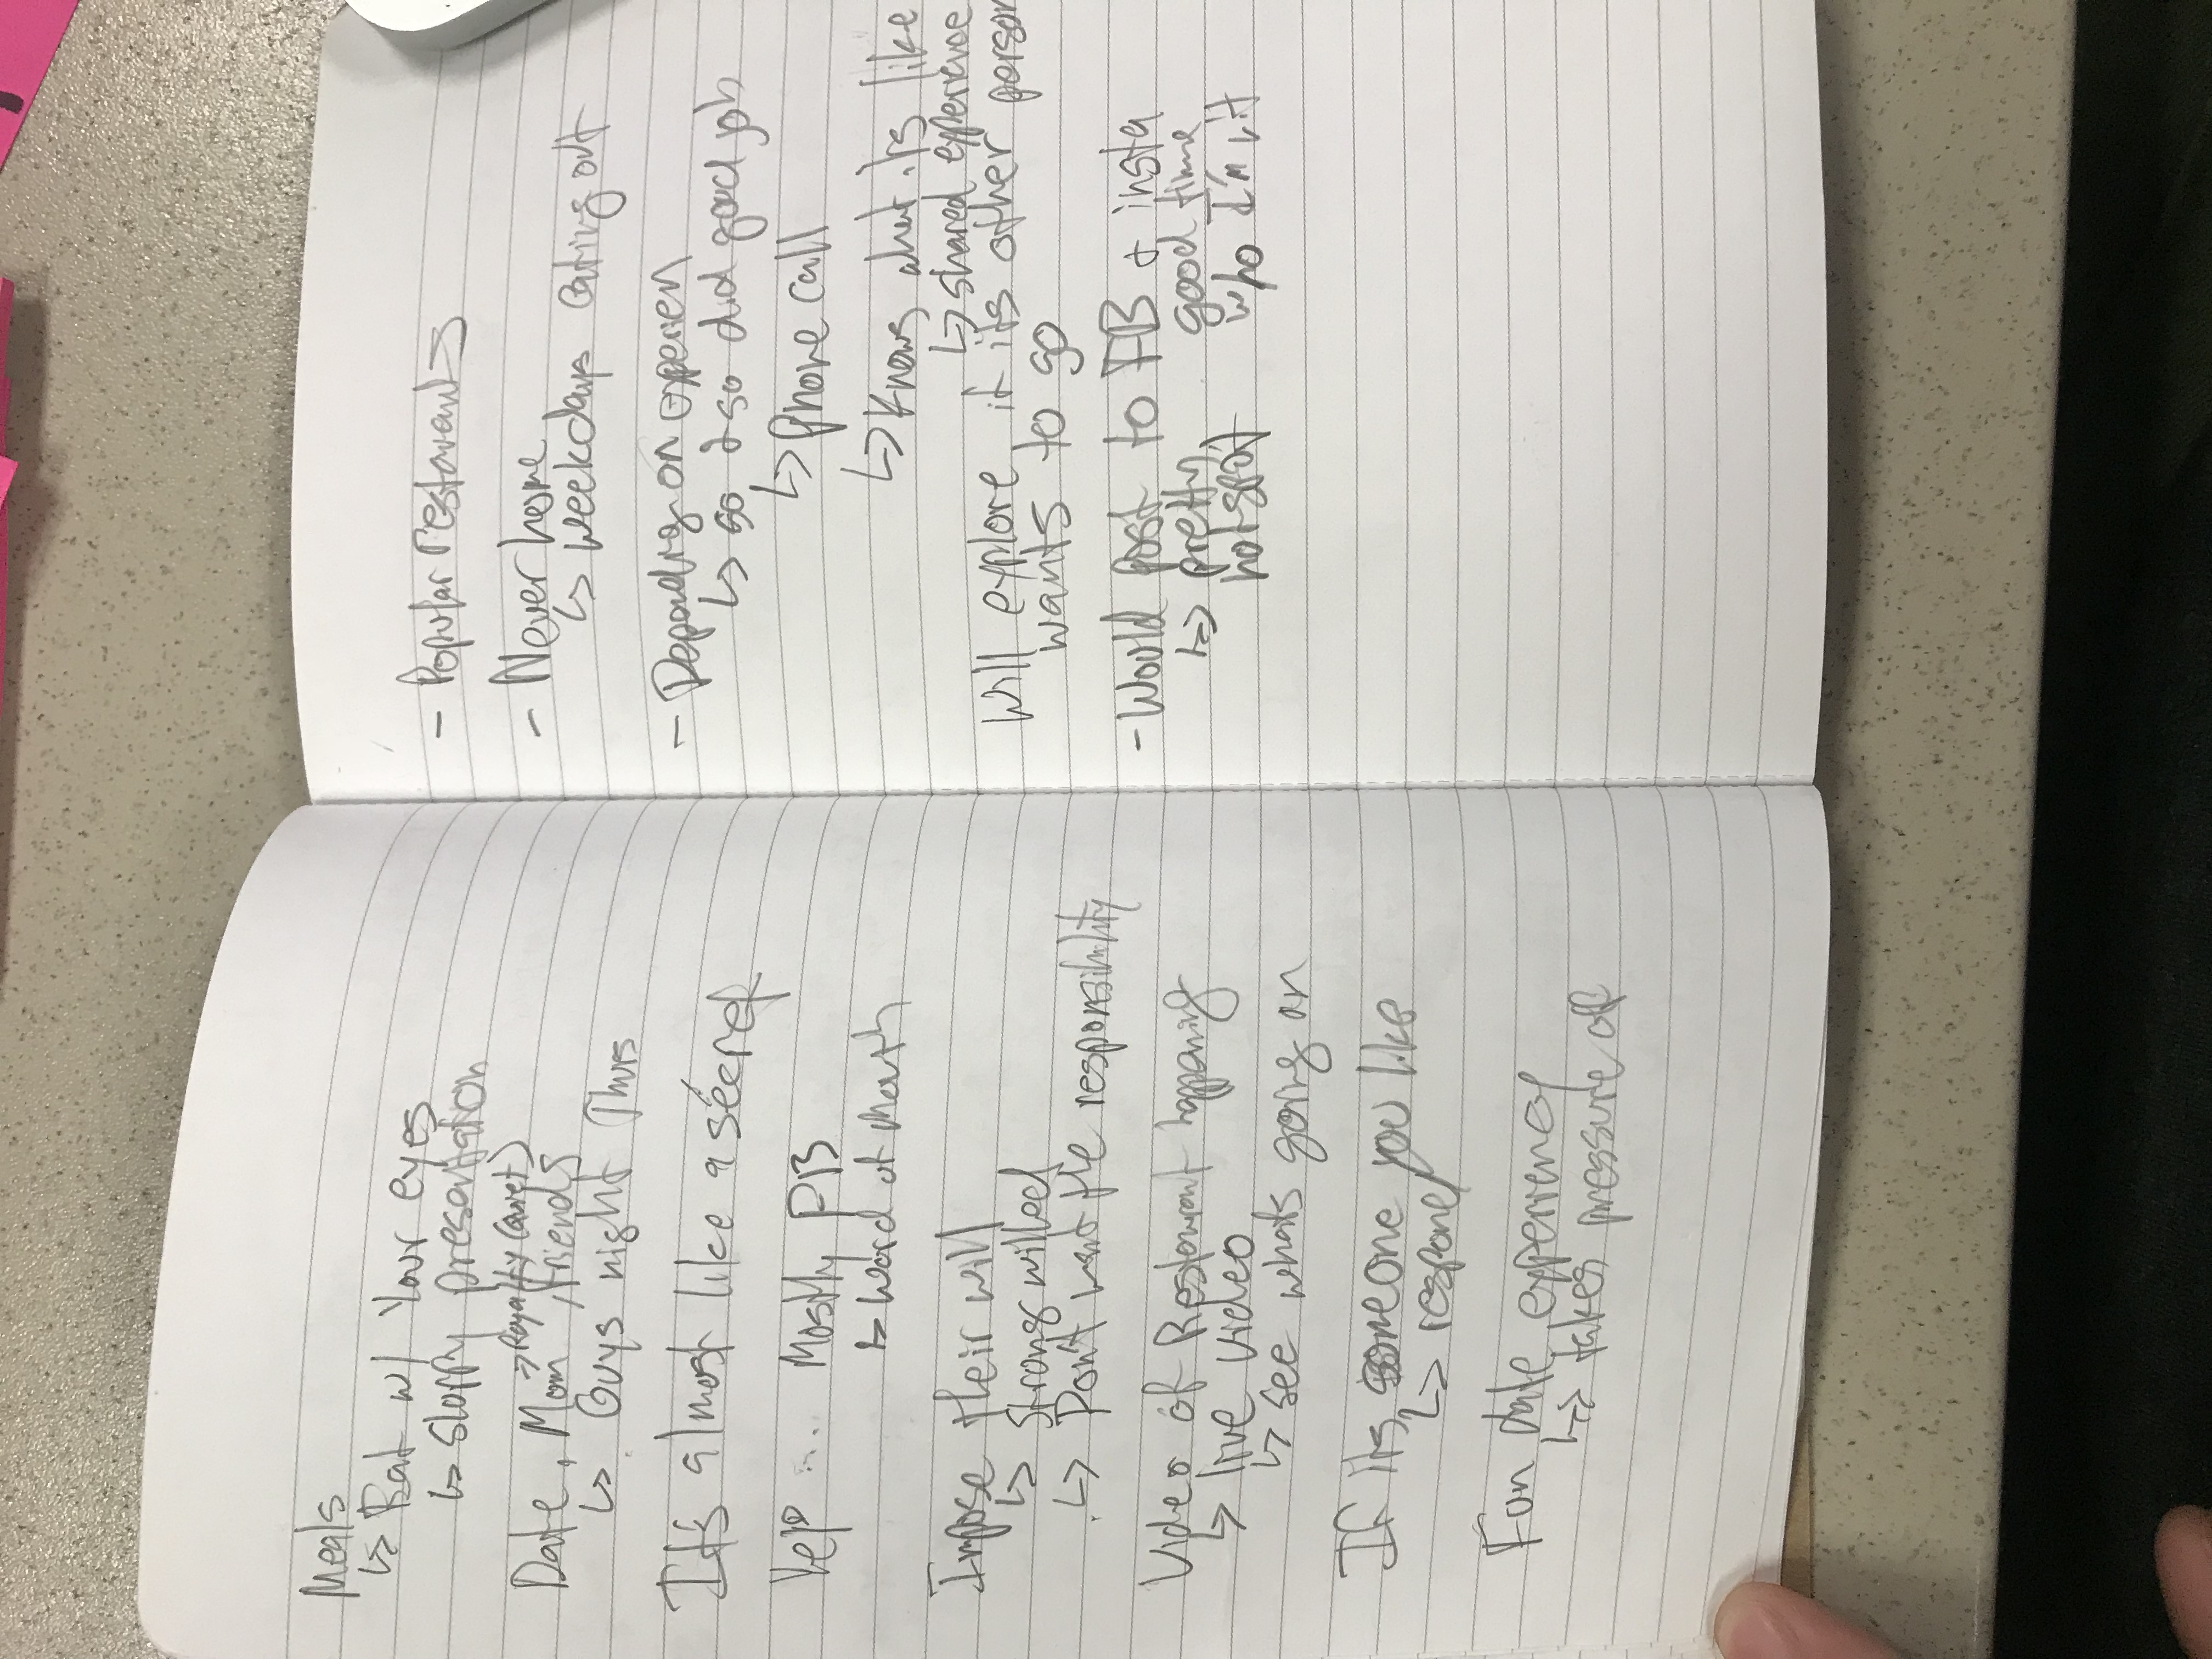 Meals
↳ Eat w/ Your eyes
↳ Sloppy presentation
→ Royalty (Quiet)
Date, Mom, friends
↳ Guys night Thurs
It's almost like a secret
Yelp ... Mostly FB
↳ Word of Mouth
Impose their will
↳ Strong willed
↳ Don't want the responsibility
Video of Restaurant happening
↳ live video
↳ see whats going on
If its someone you like
↳ respond
Fun date experience
↳ takes pressure off
- Popular restaurants
- Never home
↳ weekdays eating out
- Depending on experien
↳ so & so did good job
↳ Phone call
↳ Knows what its like
↳ shared experience
Will explore if its other person
wants to go
- Would post to FB & insta
↳ pretty, good time
hotspot who I'm w/